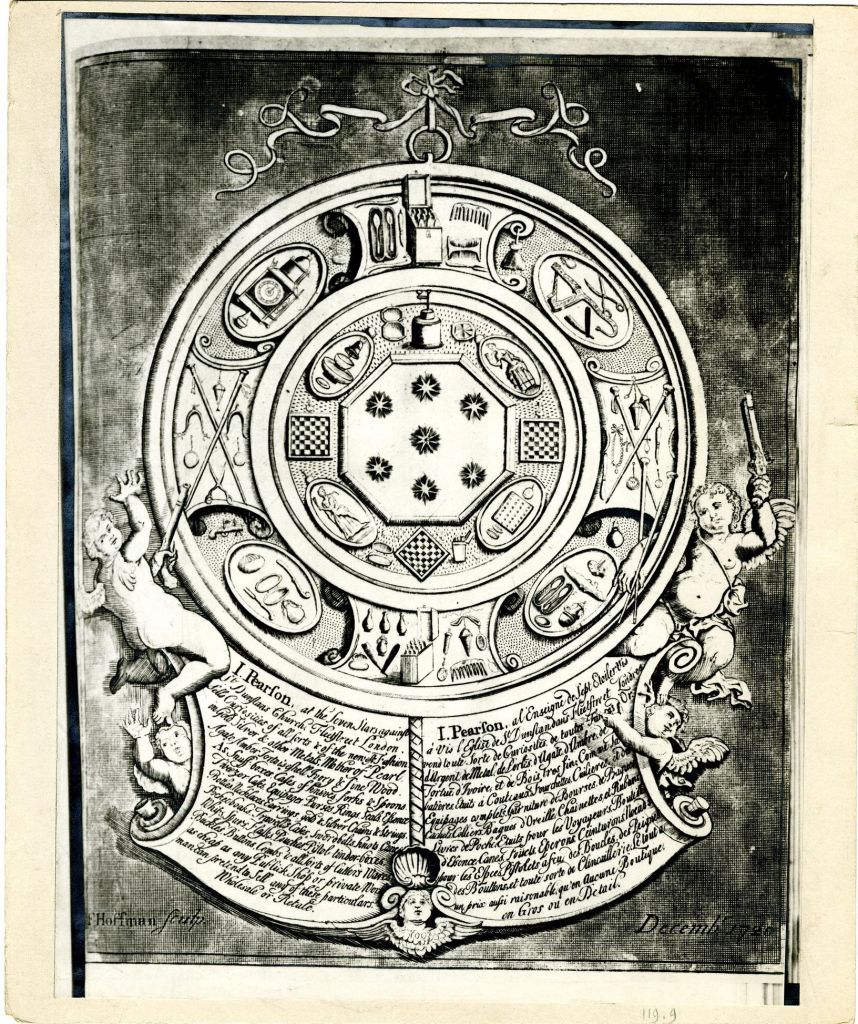 I. Pearson, at the Seven Stars against
St. Dunstans Church Fleetstreet London.
Sells Curiosities of all sorts & of the newest Fashion
in Gold Silver & other Metals, Mother of Pearl
Agat Amber Tortoiseshell Ivory & fine Wood.
As Snuff boxes Cases of Knives Forks & Spoons
Tweezer Cases Equipages Purses Rings Seals
Necklaces Earrings Gold & Silver Chains & Strings,
Pocketbooks Travelling Cases Sword belts
Whips Spurs Fusils Pocket Pistols tinder boxes,
Buckles Buttons Combs & all sorts of Cutlers Wares
as cheap as any Publick Shop or private Work
man can pretend to Sell any of these particulars
Wholesale or Retale.
I. Pearson, a l'Enseigne de Sept Etoiles vis
à Vis l'Eglise de St. Dunstan dans Fleetstreet Londres
vend toute Sorte de Curiosités de toutes
d'Argent de Metal, de Perles d'Agate d'Ambre
Tortue d'Ivoire, et de Bois tres fins, Comme
Etuis à Couteaux Fourchettes Cuilieres
Equipages complets Garniture de Bourses
Cachets Colliers Bagues d'Oreille Chainettes
Livres de Poche Etuits pour les Voyageurs
d'Essence Canes, Fouets Eperons Ceinturons
pour les Pistolets à feu, des Boucles des Peignes
des Bouttons, et toute sorte de Clincaillerie, le tout a
un prix aussi raisonable, qu'en aucune Boutique.
en Gros ou en Detail.
Hoffman sculp.
Decembr.
119.9